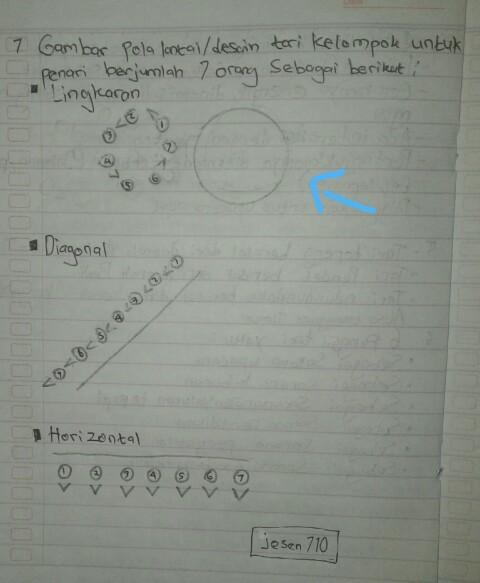 7 Gambar Pola lantai/desain tari kelompok untuk
penari berjumlah 7 orang sebagai berikut:
Lingkaran
2 1
3
7
4
5 6
Diagonal
1
2
3
4
5
6
7
Horizontal
1 2 3 4 5 6 7
jesen710